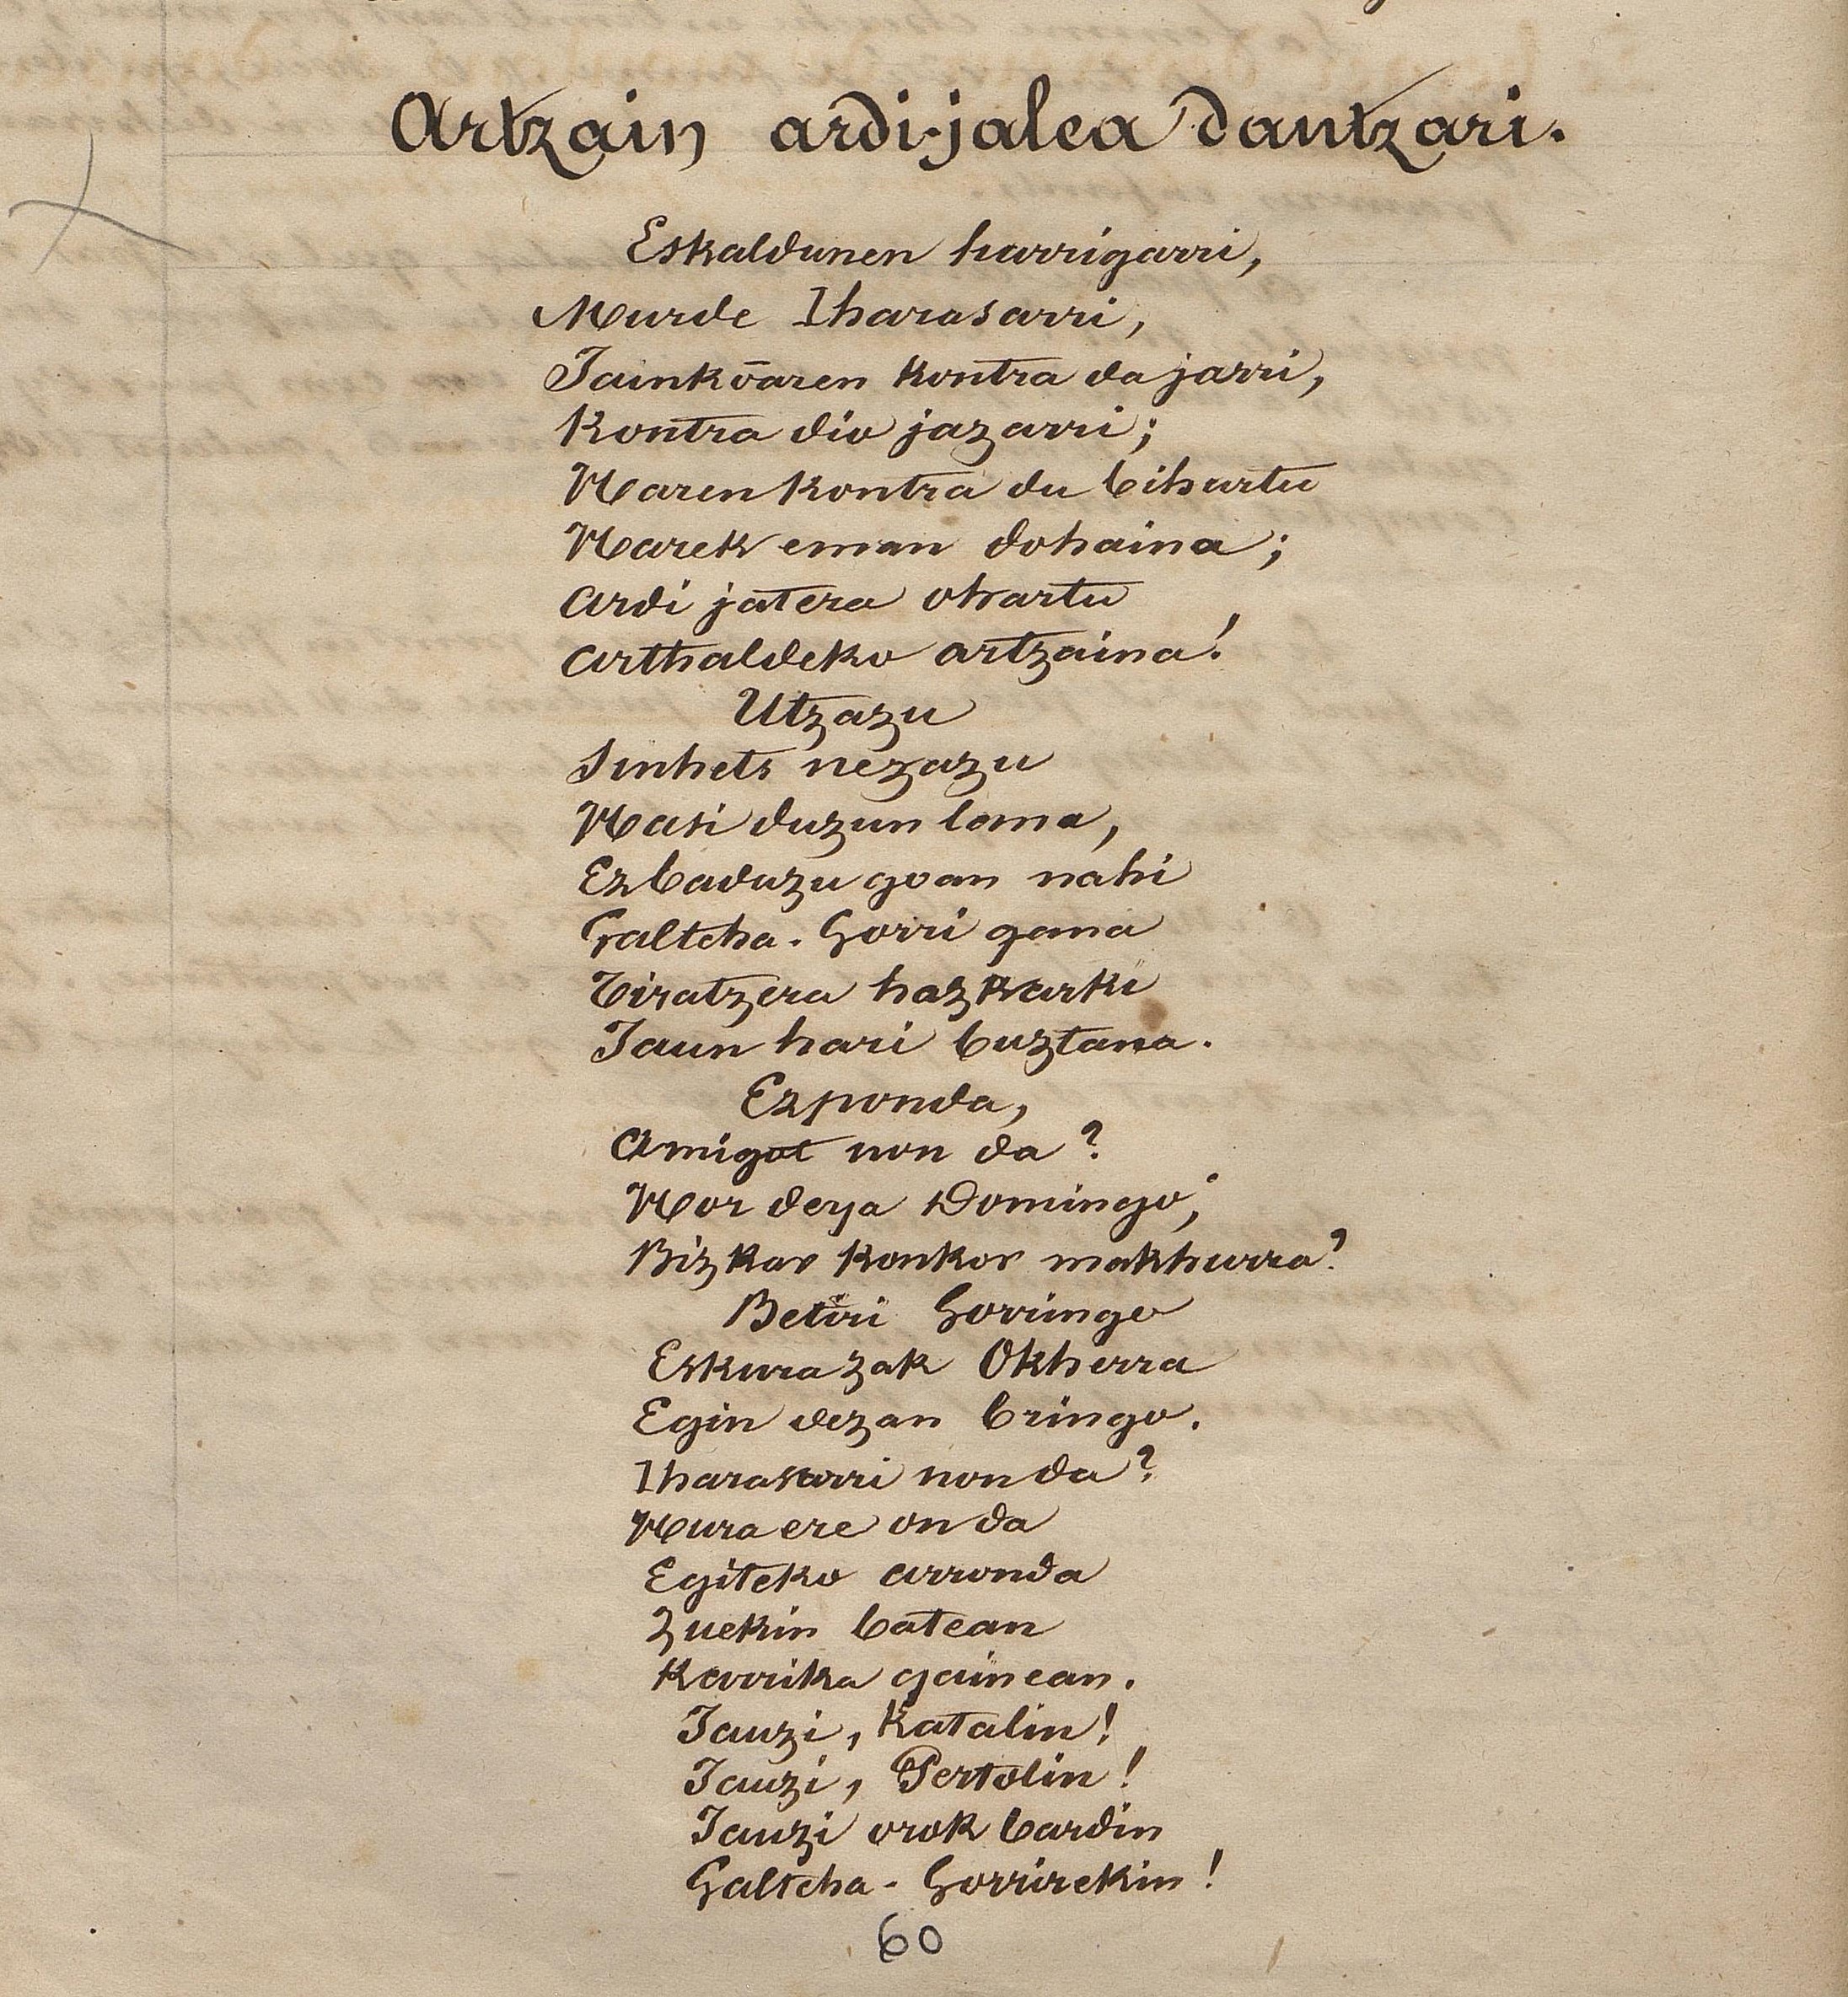 Artzain ardi-jalea dantzari.
Eskaldunen harrigarri,
Murde Iharasarri,
Jainkōaren kontra da jarri,
Kontra dio jazarri;
Haren kontra du bihurtu
Harek eman dohaina;
Ardi jatera ohartu
Arthaldeko artzaina!
Utzazu
Sinhets nezazu
Hasi duzun lana,
Ez baduzu goan nahi
Galtcha-Gorri gana
Tiratzera hazkarki
Jaun hari buztana.
Ezponda,
Amigot non da?
Hor deya Domingo,
Bizkar konkor makhurra?
Betiri Gorringo
Eskura zak Okherra
Egin dezan bringo.
Iharasarri non da?
Hura ere on da
Egiteko arronda
Zuekin batean
Karrika gainean.
Jauzi, Katalin!
Jauzi, Pertolin!
Jauzi orok bardin
Galtcha-Gorrirekin!
60